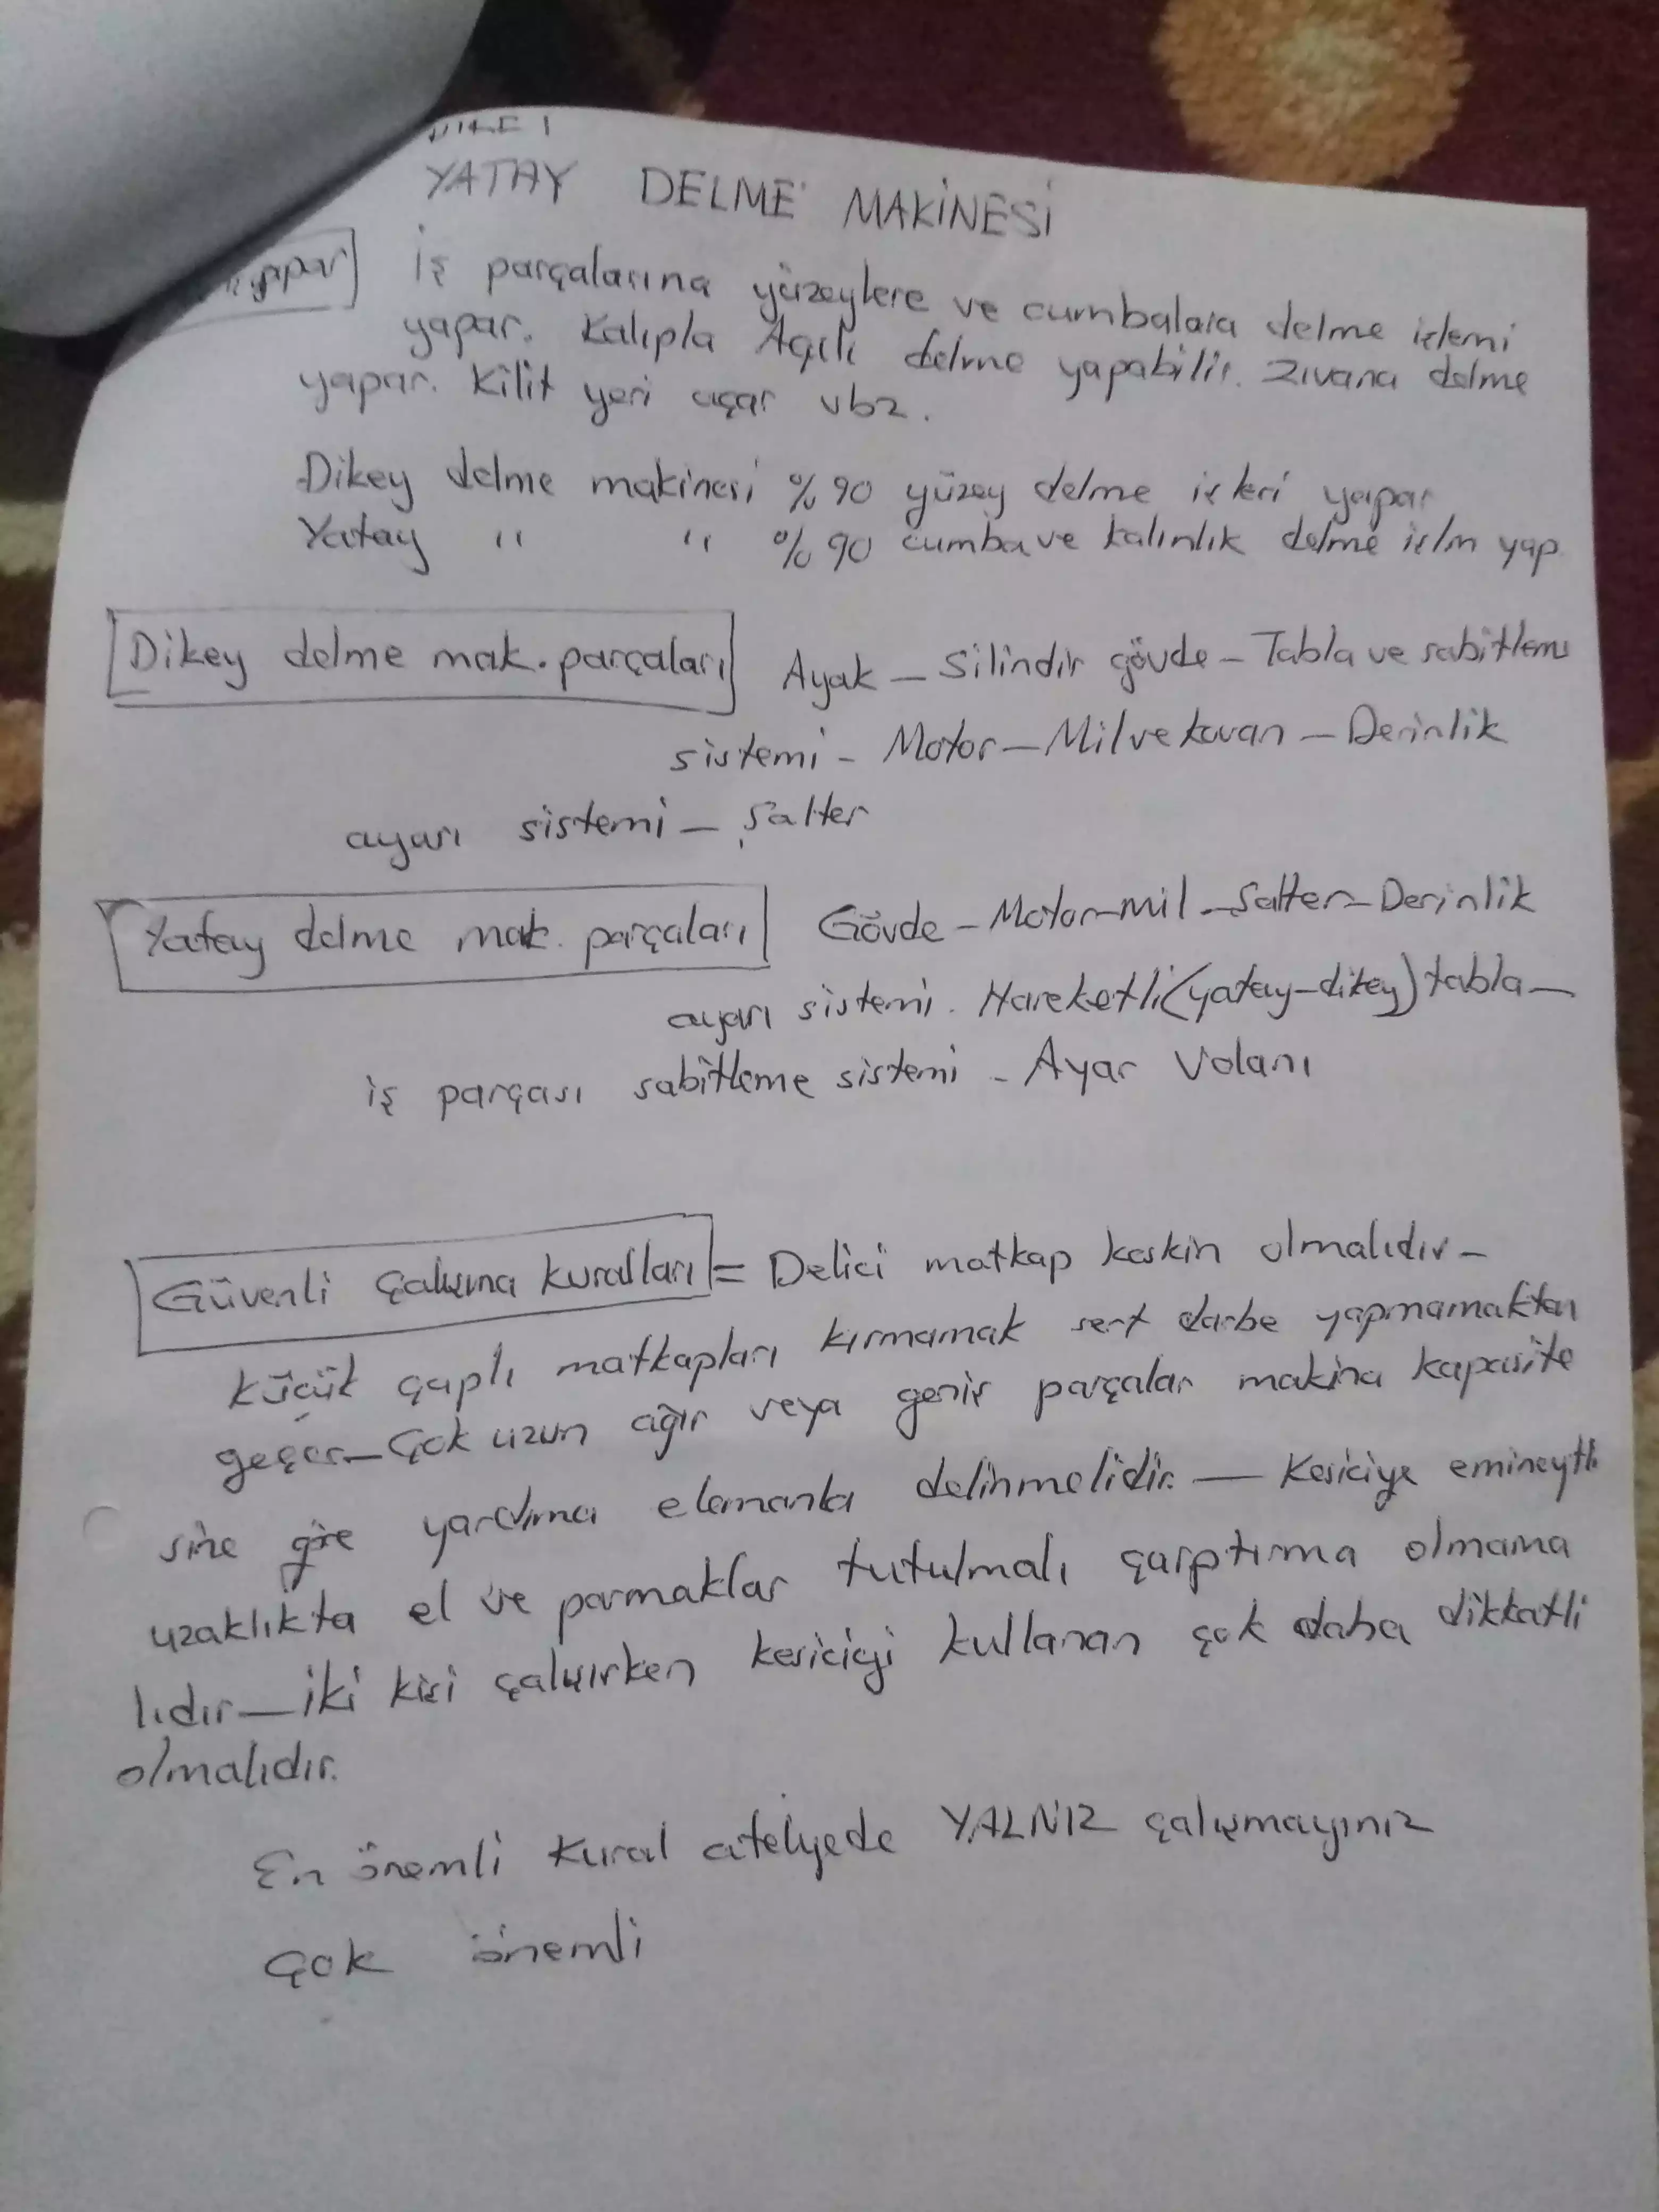 YATAY DELME MAKİNESİ
yapar İş parçalarına yüzeylere ve cumbalara delme işlemi
yapar. Kalıpla Açılı delme yapabilir. Zıvana delme
yapar. Kilit yeri açar vbz.
Dikey delme makinesi %90 yüzey delme işleri yapar
Yatay " " %90 cumba ve kalınlık delme işlm yap.
Dikey delme mak. parçaları Ayak - Silindir gövde - Tabla ve sabitleme
sistemi - Motor - Mil ve kovan - Derinlik
ayarı sistemi - Şalter
Yatay delme mak. parçaları Gövde - Motor - mil - Şalter - Derinlik
ayarı sistemi. Hareketli (yatay-dikey) tabla -
iş parçası sabitleme sistemi - Ayar Volanı
Güvenli çalışma kuralları = Delici matkap keskin olmalıdır -
Küçük çaplı matkapları kırmamak sert darbe yapmamaktan
geçer - Çok uzun ağır veya geniş parçalar makina kapasite
sine göre yardımcı elemanla delinmelidir. - Kesiciye emineytli
uzaklıkta el ve parmaklar tutulmalı çarptırma olmama
lıdır - İki kişi çalışırken kesiciyi kullanan çok daha dikkatli
olmalıdır.
En önemli kural atelyede YALNIZ çalışmayınız
Çok önemli